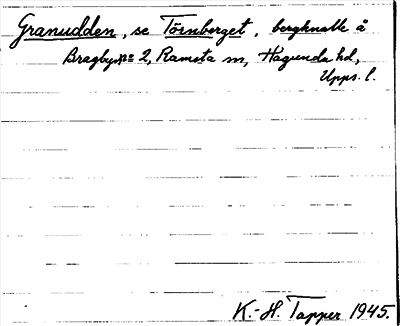 Granudden, se Törnberget, bergknalle å
Bragby nr 2, Ramsta sn, Hagunda hd,
Upps. l.
K.-H. Tapper 1945.